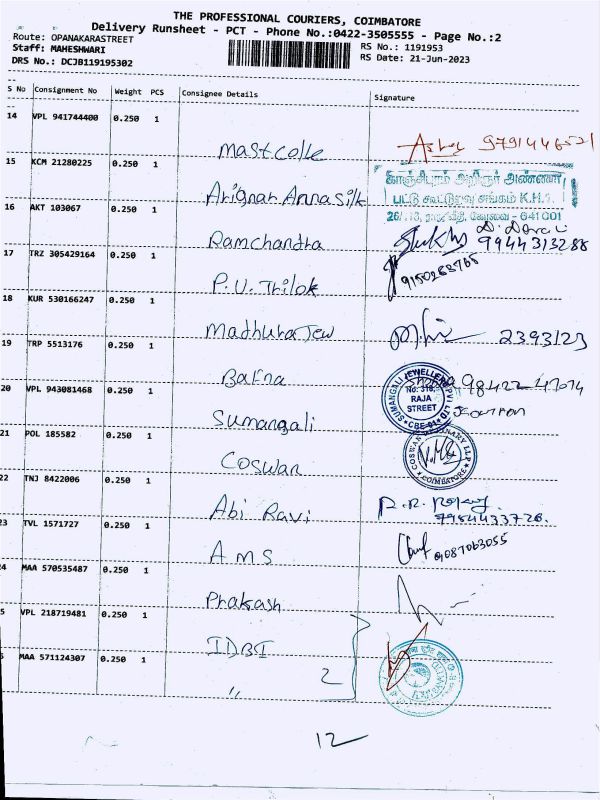 THE PROFESSIONAL COURIERS, COIMBATORE
Delivery Runsheet - PCT - Phone No.:0422-3505555 - Page No.:2
Route: OPANAKARASTREET
RS No.: 1191953
Staff: MAHESHWARI
RS Date: 21-Jun-2023
DRS No.: DCJB119195302
S No Consignment No Weight PCS Consignee Details Signature
14 VPL 941744400 0.250 1
Mastcolle 9791446521
15 KCM 21280225 0.250 1
Arignar Anna Silk
காஞ்சிபுரம் அறிஞர் அண்ணா
பட்டு கூட்டுறவு சங்கம் K.H.1.
கோவை - 641001
16 AKT 103067 0.250 1
Ramchandra 9944313288
17 TRZ 305429164 0.250 1
P.U. Thilok
18 KUR 530166247 0.250 1
Madhura Jew 2393123
19 TRP 5513176 0.250 1
Bafna 98422-47074
SUMANGALI JEWELLERS PVT LTD
No: 318,
RAJA
STREET
CBE-01
20 VPL 943081468 0.250 1
Sumangali
21 POL 185582 0.250 1
Coswan
COIMBATORE
22 TNJ 8422006 0.250 1
Abi Ravi
23 TVL 1571727 0.250 1
AMS 9087063055
24 MAA 570535487 0.250 1
Phakash
5 VPL 218719481 0.250 1
IDBI
MAA 571124307 0.250 1
" 2
12